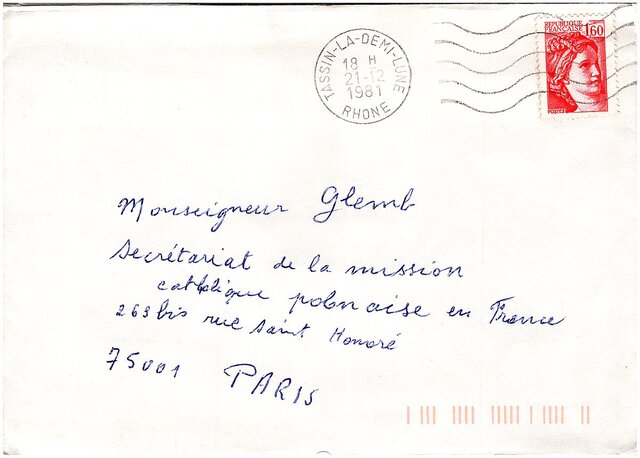 TASSIN-LA-DEMI-LUNE
18 H
21-12
1981
RHONE
REPUBLIQUE
FRANÇAISE 1,60
POSTES
Monseigneur Glemb
Secrétariat de la mission
catholique polonaise en France
263 bis rue Saint Honoré
75001 PARIS